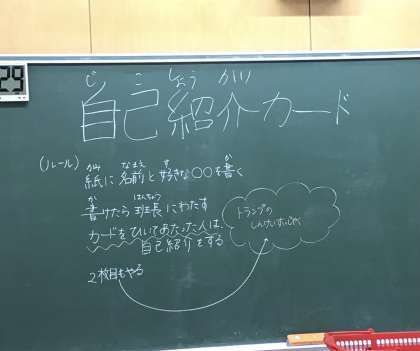 29
じ こ しょう かい
自己紹介カード
(ルール)
かみ なまえ す か
紙に名前と好きな○○を書く
か はんちょう
書けたら班長にわたす
カードをひいてあたった人は、
自己紹介をする
2枚目もやる
トランプの
しんけいすいじゃく